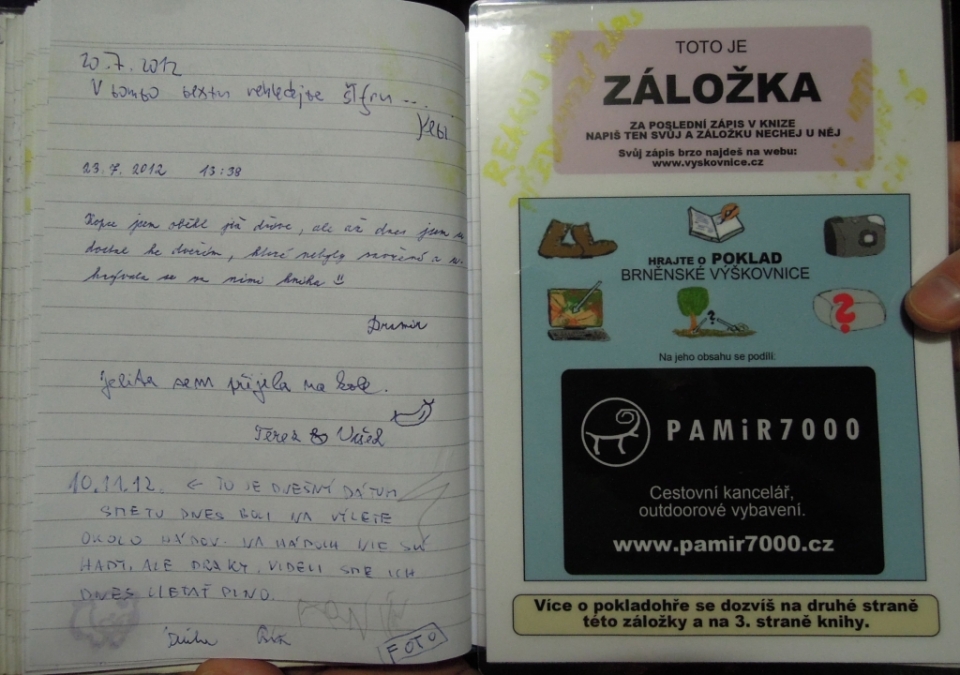 20.7.2012
V tomto textu nehledejte šifru ...
23.7.2012 13:38
Kopec jsem oběhl již dříve, ale až dnes jsem se
dostal ke dveřím, které nebyly zavřené a
za nimi knížka
jelita sem přijela na kole.
Terez
10.11.12. ← TO JE DNEŠNÝ DÁTUM
SME TU DNES BOLI NA VÝLETE
OKOLO HÁDOV. NA HÁDOCH NIE SÚ
HADY, ALE DRAKY. VIDELI SME ICH
DNES LIETAŤ PLNO.
FOTO
TOTO JE
ZÁLOŽKA
ZA POSLEDNÍ ZÁPIS V KNIZE
NAPIŠ TEN SVŮJ A ZÁLOŽKU NECHEJ U NĚJ
Svůj zápis brzo najdeš na webu:
www.vyskovnice.cz
HRAJTE O POKLAD
BRNĚNSKÉ VÝŠKOVNICE
?
?
Na jeho obsahu se podílí:
PAMiR7000
Cestovní kancelář,
outdoorové vybavení.
www.pamir7000.cz
Více o pokladohře se dozvíš na druhé straně
této záložky a na 3. straně knihy.